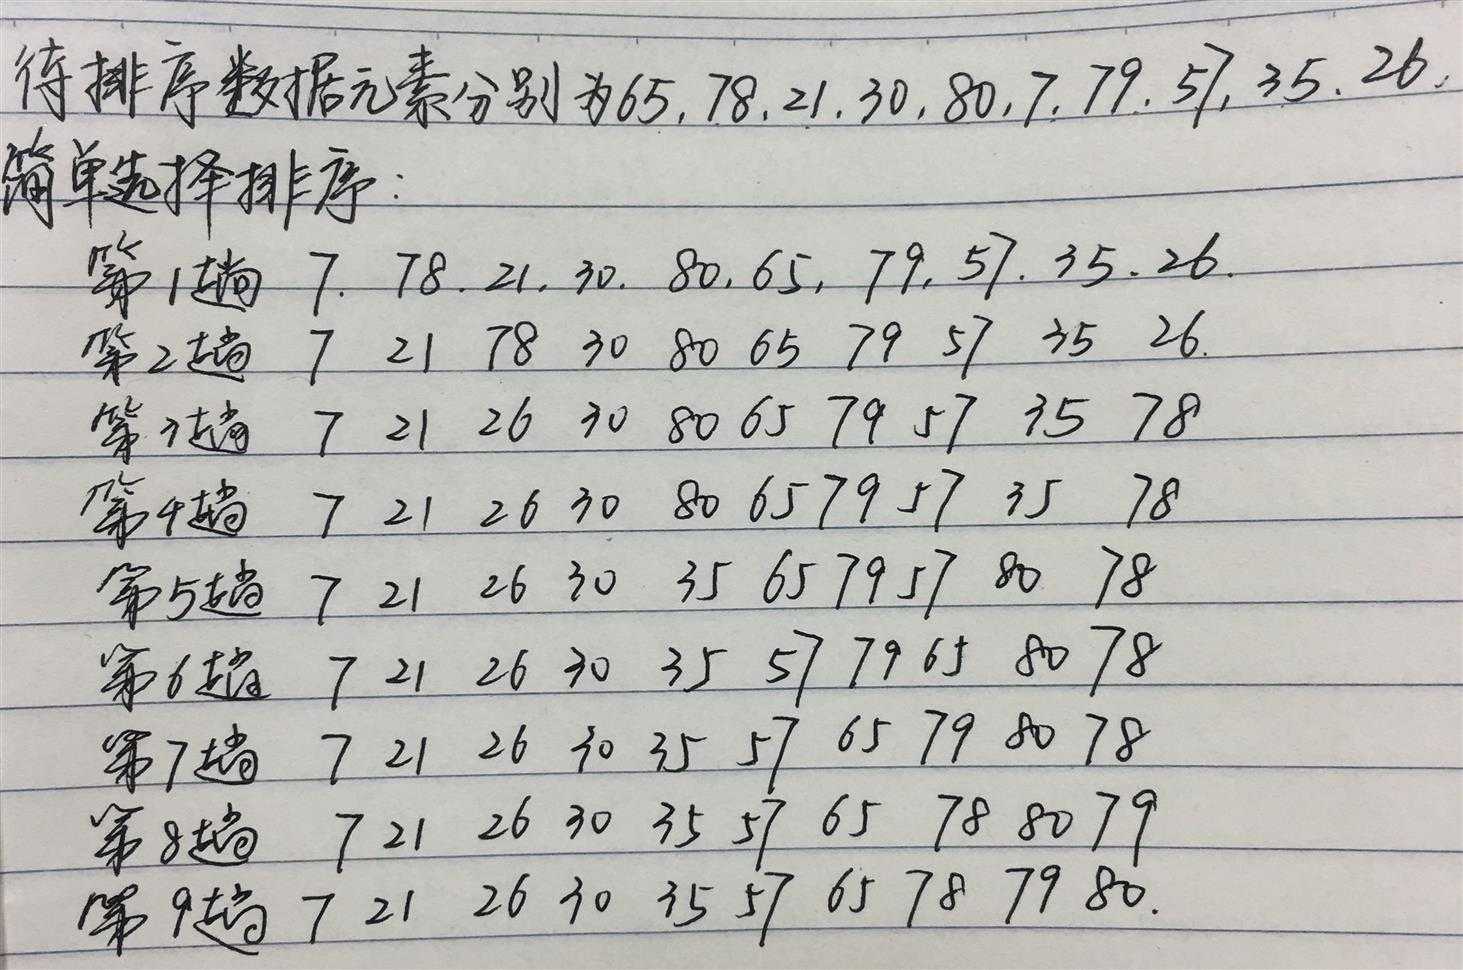 待排序数据元素分别为65.78.21.30.80.7.79.57.35.26.
简单选择排序:
第1趟 7. 78. 21. 30. 80. 65. 79. 57. 35. 26.
第2趟 7 21 78 30 80 65 79 57 35 26.
第3趟 7 21 26 30 80 65 79 57 35 78
第4趟 7 21 26 30 80 65 79 57 35 78
第5趟 7 21 26 30 35 65 79 57 80 78
第6趟 7 21 26 30 35 57 79 65 80 78
第7趟 7 21 26 30 35 57 65 79 80 78
第8趟 7 21 26 30 35 57 65 78 80 79
第9趟 7 21 26 30 35 57 65 78 79 80.